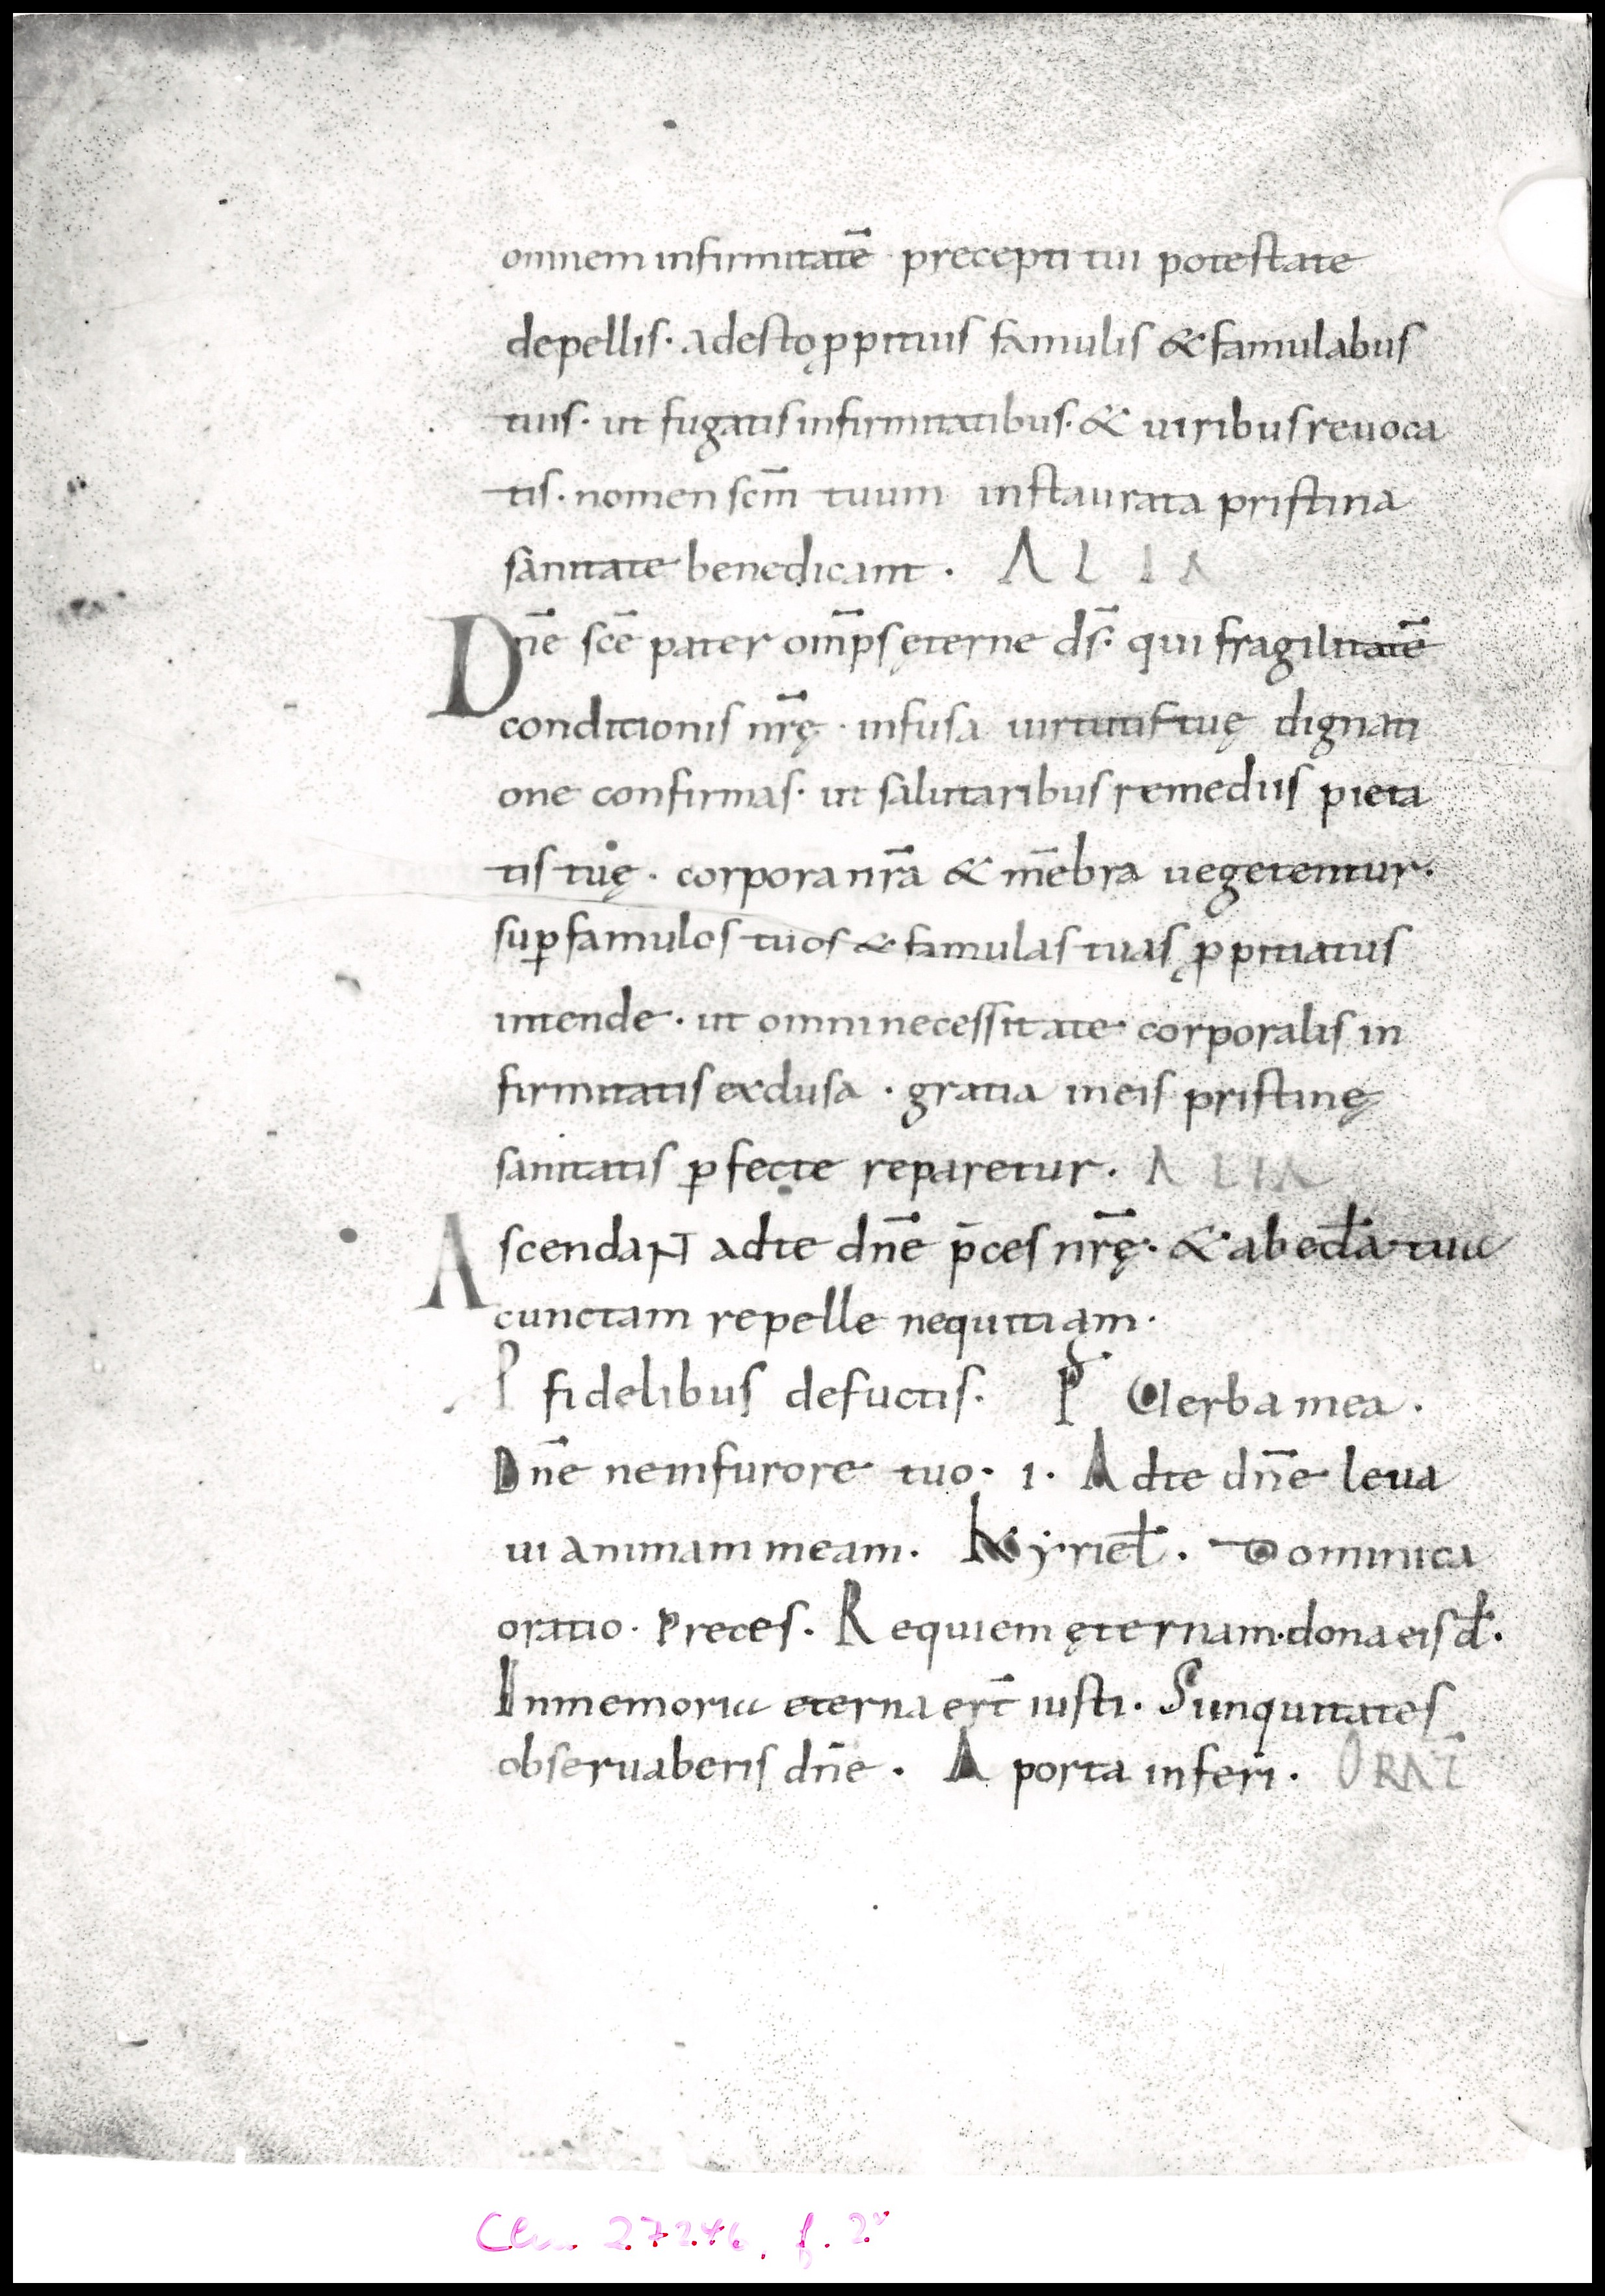 omnem infirmitatē precepti tui potestate
depellis· adesto ꝓpitius famulis & famulabus
tuis· ut fugatis infirmitatibus· & uiribus reuoca
tis· nomen scm̄ tuum instaurata pristina
sanitate benedicant · ALIA
Dn̄e scē pater om̄ps ęterne ds̄· qui fragilitatē
conditionis nr̄ę · infusa uirtutis tuę dignati
one confirmas· ut salutaribus remediis pieta
tis tuę · corpora nr̄a & m̄ebra uegetentur·
suꝑ famulos tuos & famulas tuas ꝓpitiatus
intende · ut omni necessitate corporalis in
firmitatis exclusa · gratia in eis pristinę
sanitatis ꝑfecte reparetur · ALIA
Ascendant ad te dn̄e p̄ces nr̄ę· & ab eccł̄a tua
cunctam repelle nequitiam·
P fidelibus defuctis· Ps Uerba mea ·
Dn̄e ne in furore tuo · 1 · Ad te dn̄e leua
ui animam meam · Kyrieł · Dominica
oratio · Preces · Requiem ęternam· dona eis đ ·
In memoria eterna er̄t iusti · S iniquitates
obseruaberis dn̄e · A porta inferi · ORAT̄
Clm 27246, f. 2v